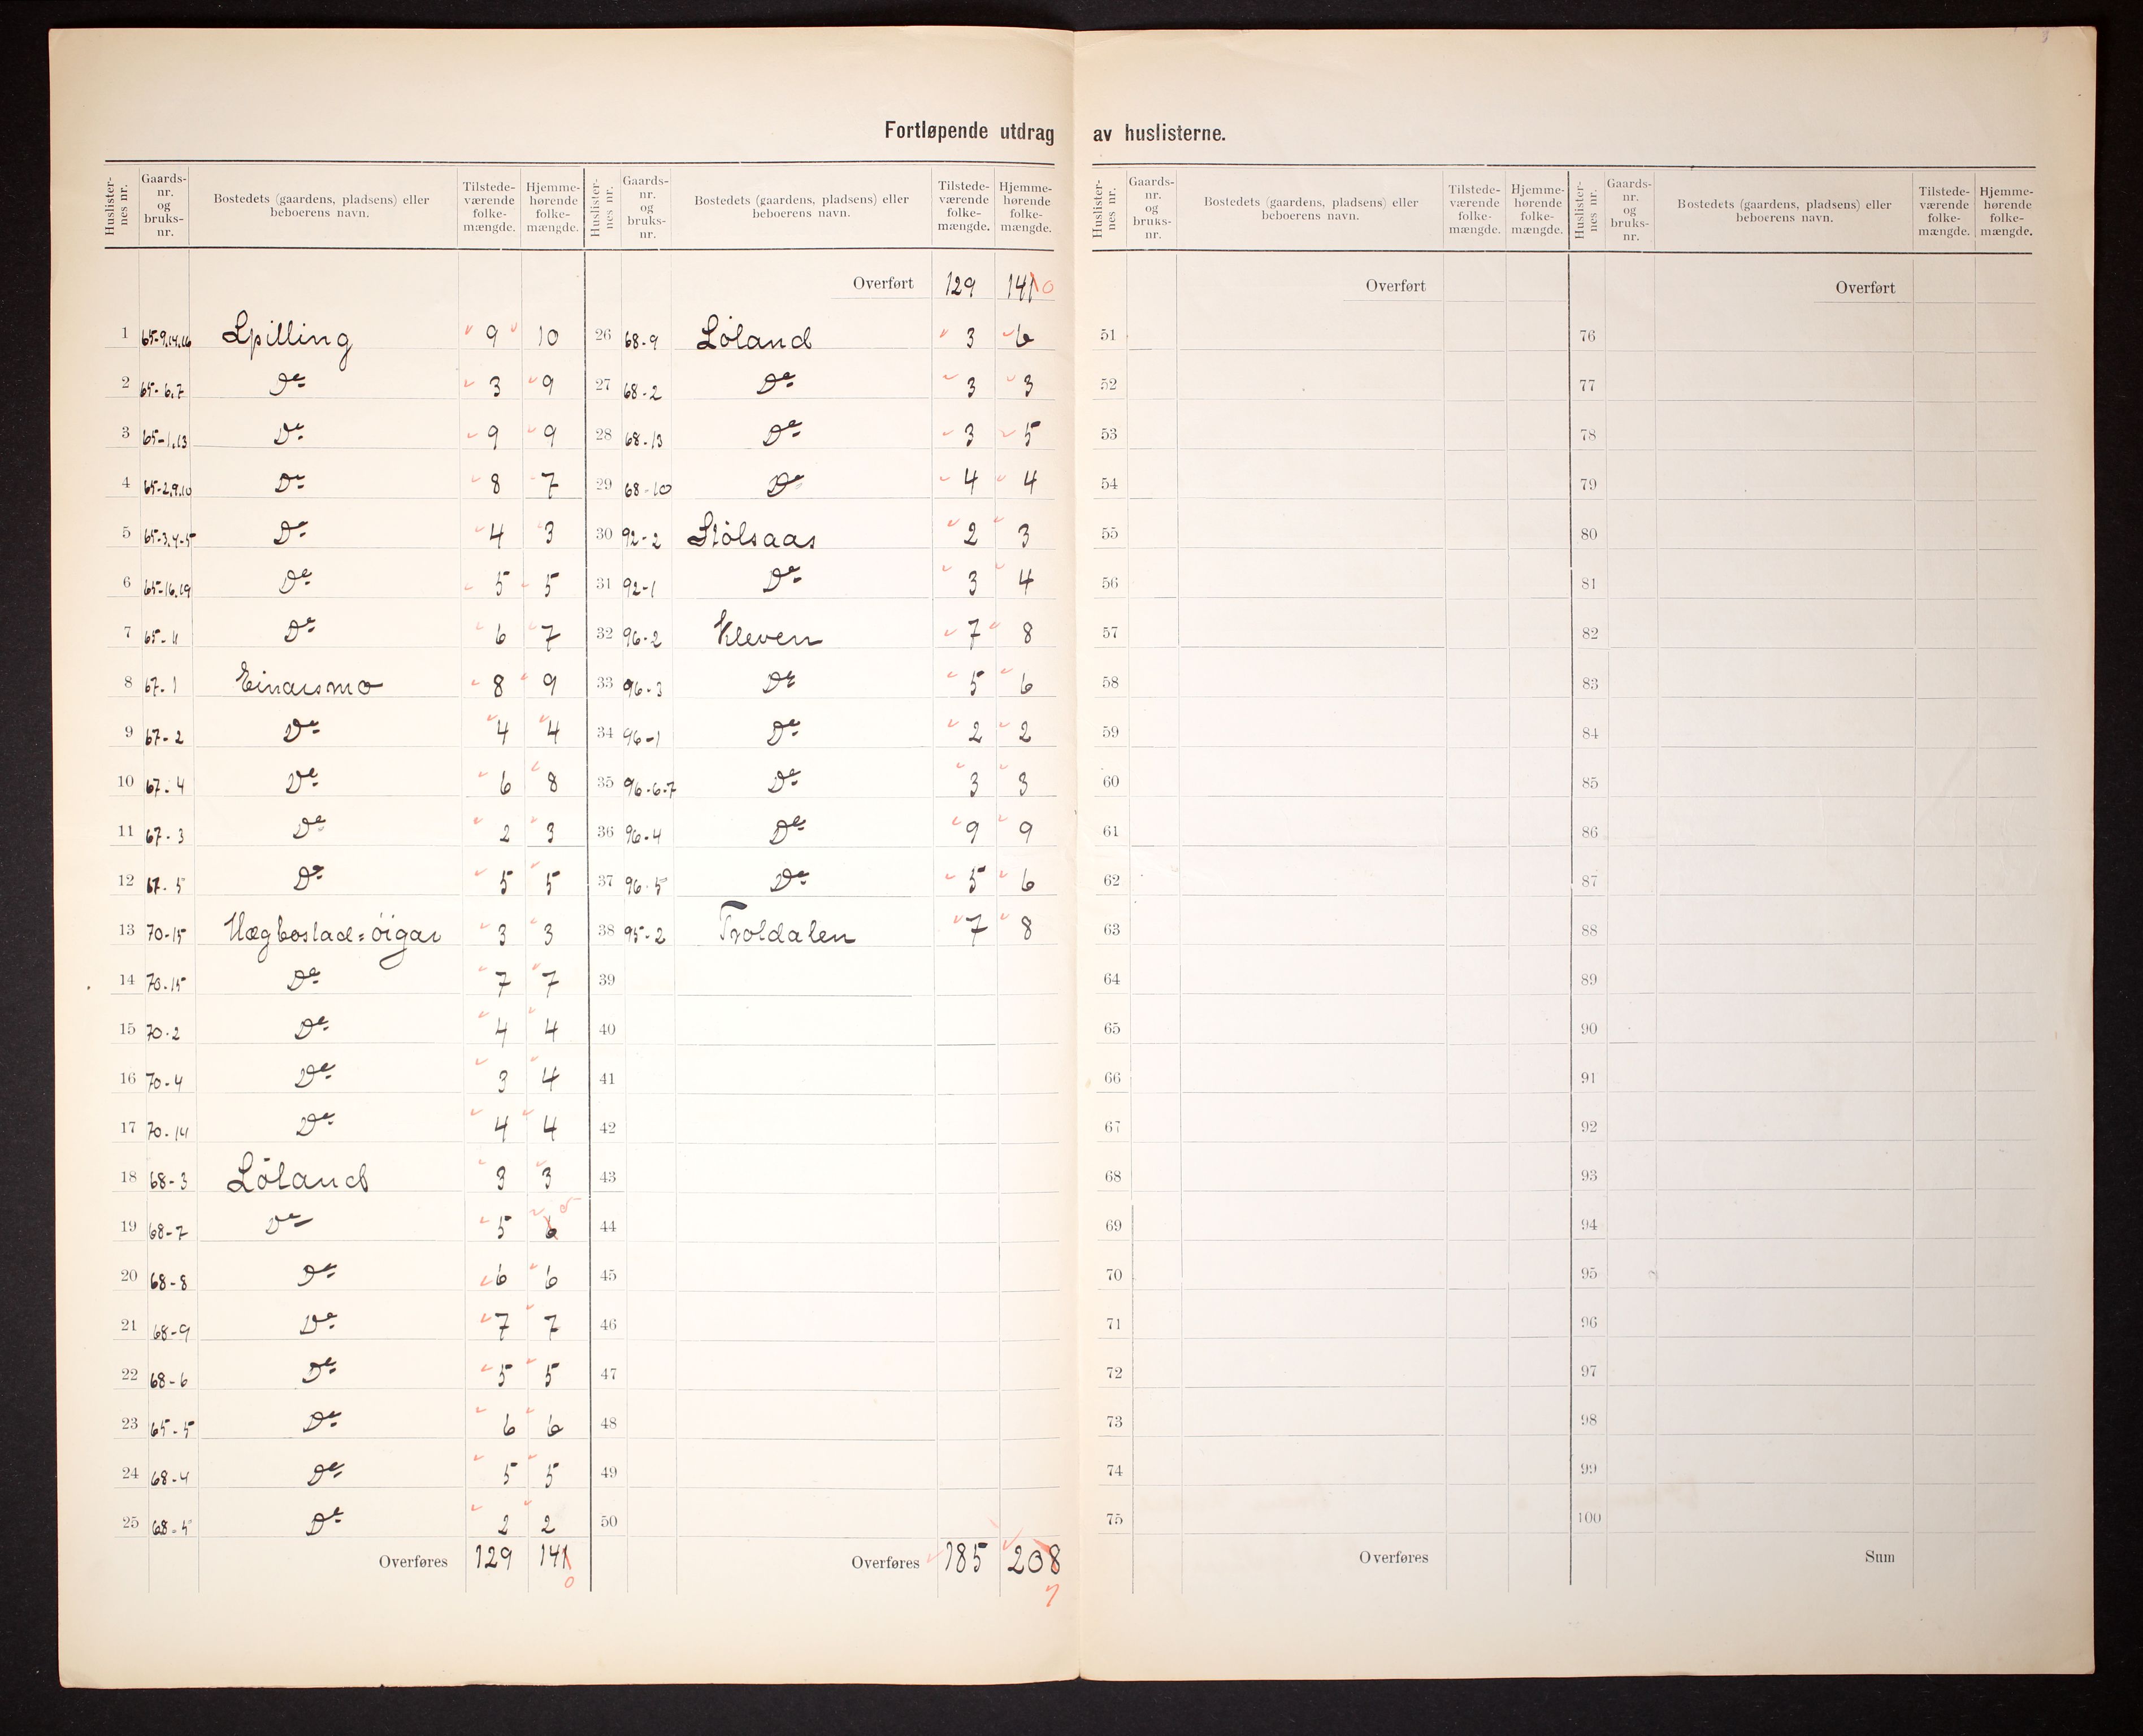 Fortløpende utdrag av huslisterne.
Huslisternes nr. Gaardsnr. og bruksnr. Bostedets (gaardens, pladsens) eller beboerens navn. Tilstedeværende folkemængde. Hjemmehørende folkemængde.
1 65-9,14,16 Spilling 9 10
2 65-6,7 Do 3 9
3 65-1,13 Do 9 9
4 65-2,9,10 Do 8 7
5 65-3,4-5 Do 4 3
6 65-16,19 Do 5 5
7 65-11 Do 6 7
8 67-1 Einarsmo 8 9
9 67-2 Do 4 4
10 67-4 Do 6 8
11 67-3 Do 2 3
12 67-5 Do 5 5
13 70-15 Hægbostad=öigar 3 3
14 70-15 Do 7 7
15 70-2 Do 4 4
16 70-4 Do 3 4
17 70-14 Do 4 4
18 68-3 Löland 3 3
19 68-7 Do 5 6 5
20 68-8 Do 6 6
21 68-9 Do 7 7
22 68-6 Do 5 5
23 65-5 Do 6 6
24 68-4 Do 5 5
25 68-5 Do 2 2
Overføres 129 141 0
Huslisternes nr. Gaardsnr. og bruksnr. Bostedets (gaardens, pladsens) eller beboerens navn. Tilstedeværende folkemængde. Hjemmehørende folkemængde.
Overført 129 141 0
26 68-9 Löland 3 6
27 68-2 Do 3 3
28 68-13 Do 3 5
29 68-10 Do 4 4
30 92-2 Stölsaas 2 3
31 92-1 Do 3 4
32 96-2 Kleven 7 8
33 96-3 Do 5 6
34 96-1 Do 2 2
35 96-6-7 Do 3 3
36 96-4 Do 9 9
37 96-5 Do 5 6
38 95-2 Troldalen 7 8
39
40
41
42
43
44
45
46
47
48
49
50
Overføres 185 208 7
Huslisternes nr. Gaardsnr. og bruksnr. Bostedets (gaardens, pladsens) eller beboerens navn. Tilstedeværende folkemængde. Hjemmehørende folkemængde.
Overført
51
52
53
54
55
56
57
58
59
60
61
62
63
64
65
66
67
68
69
70
71
72
73
74
75
Overføres
Huslisternes nr. Gaardsnr. og bruksnr. Bostedets (gaardens, pladsens) eller beboerens navn. Tilstedeværende folkemængde. Hjemmehørende folkemængde.
Overført
76
77
78
79
80
81
82
83
84
85
86
87
88
89
90
91
92
93
94
95
96
97
98
99
100
Sum